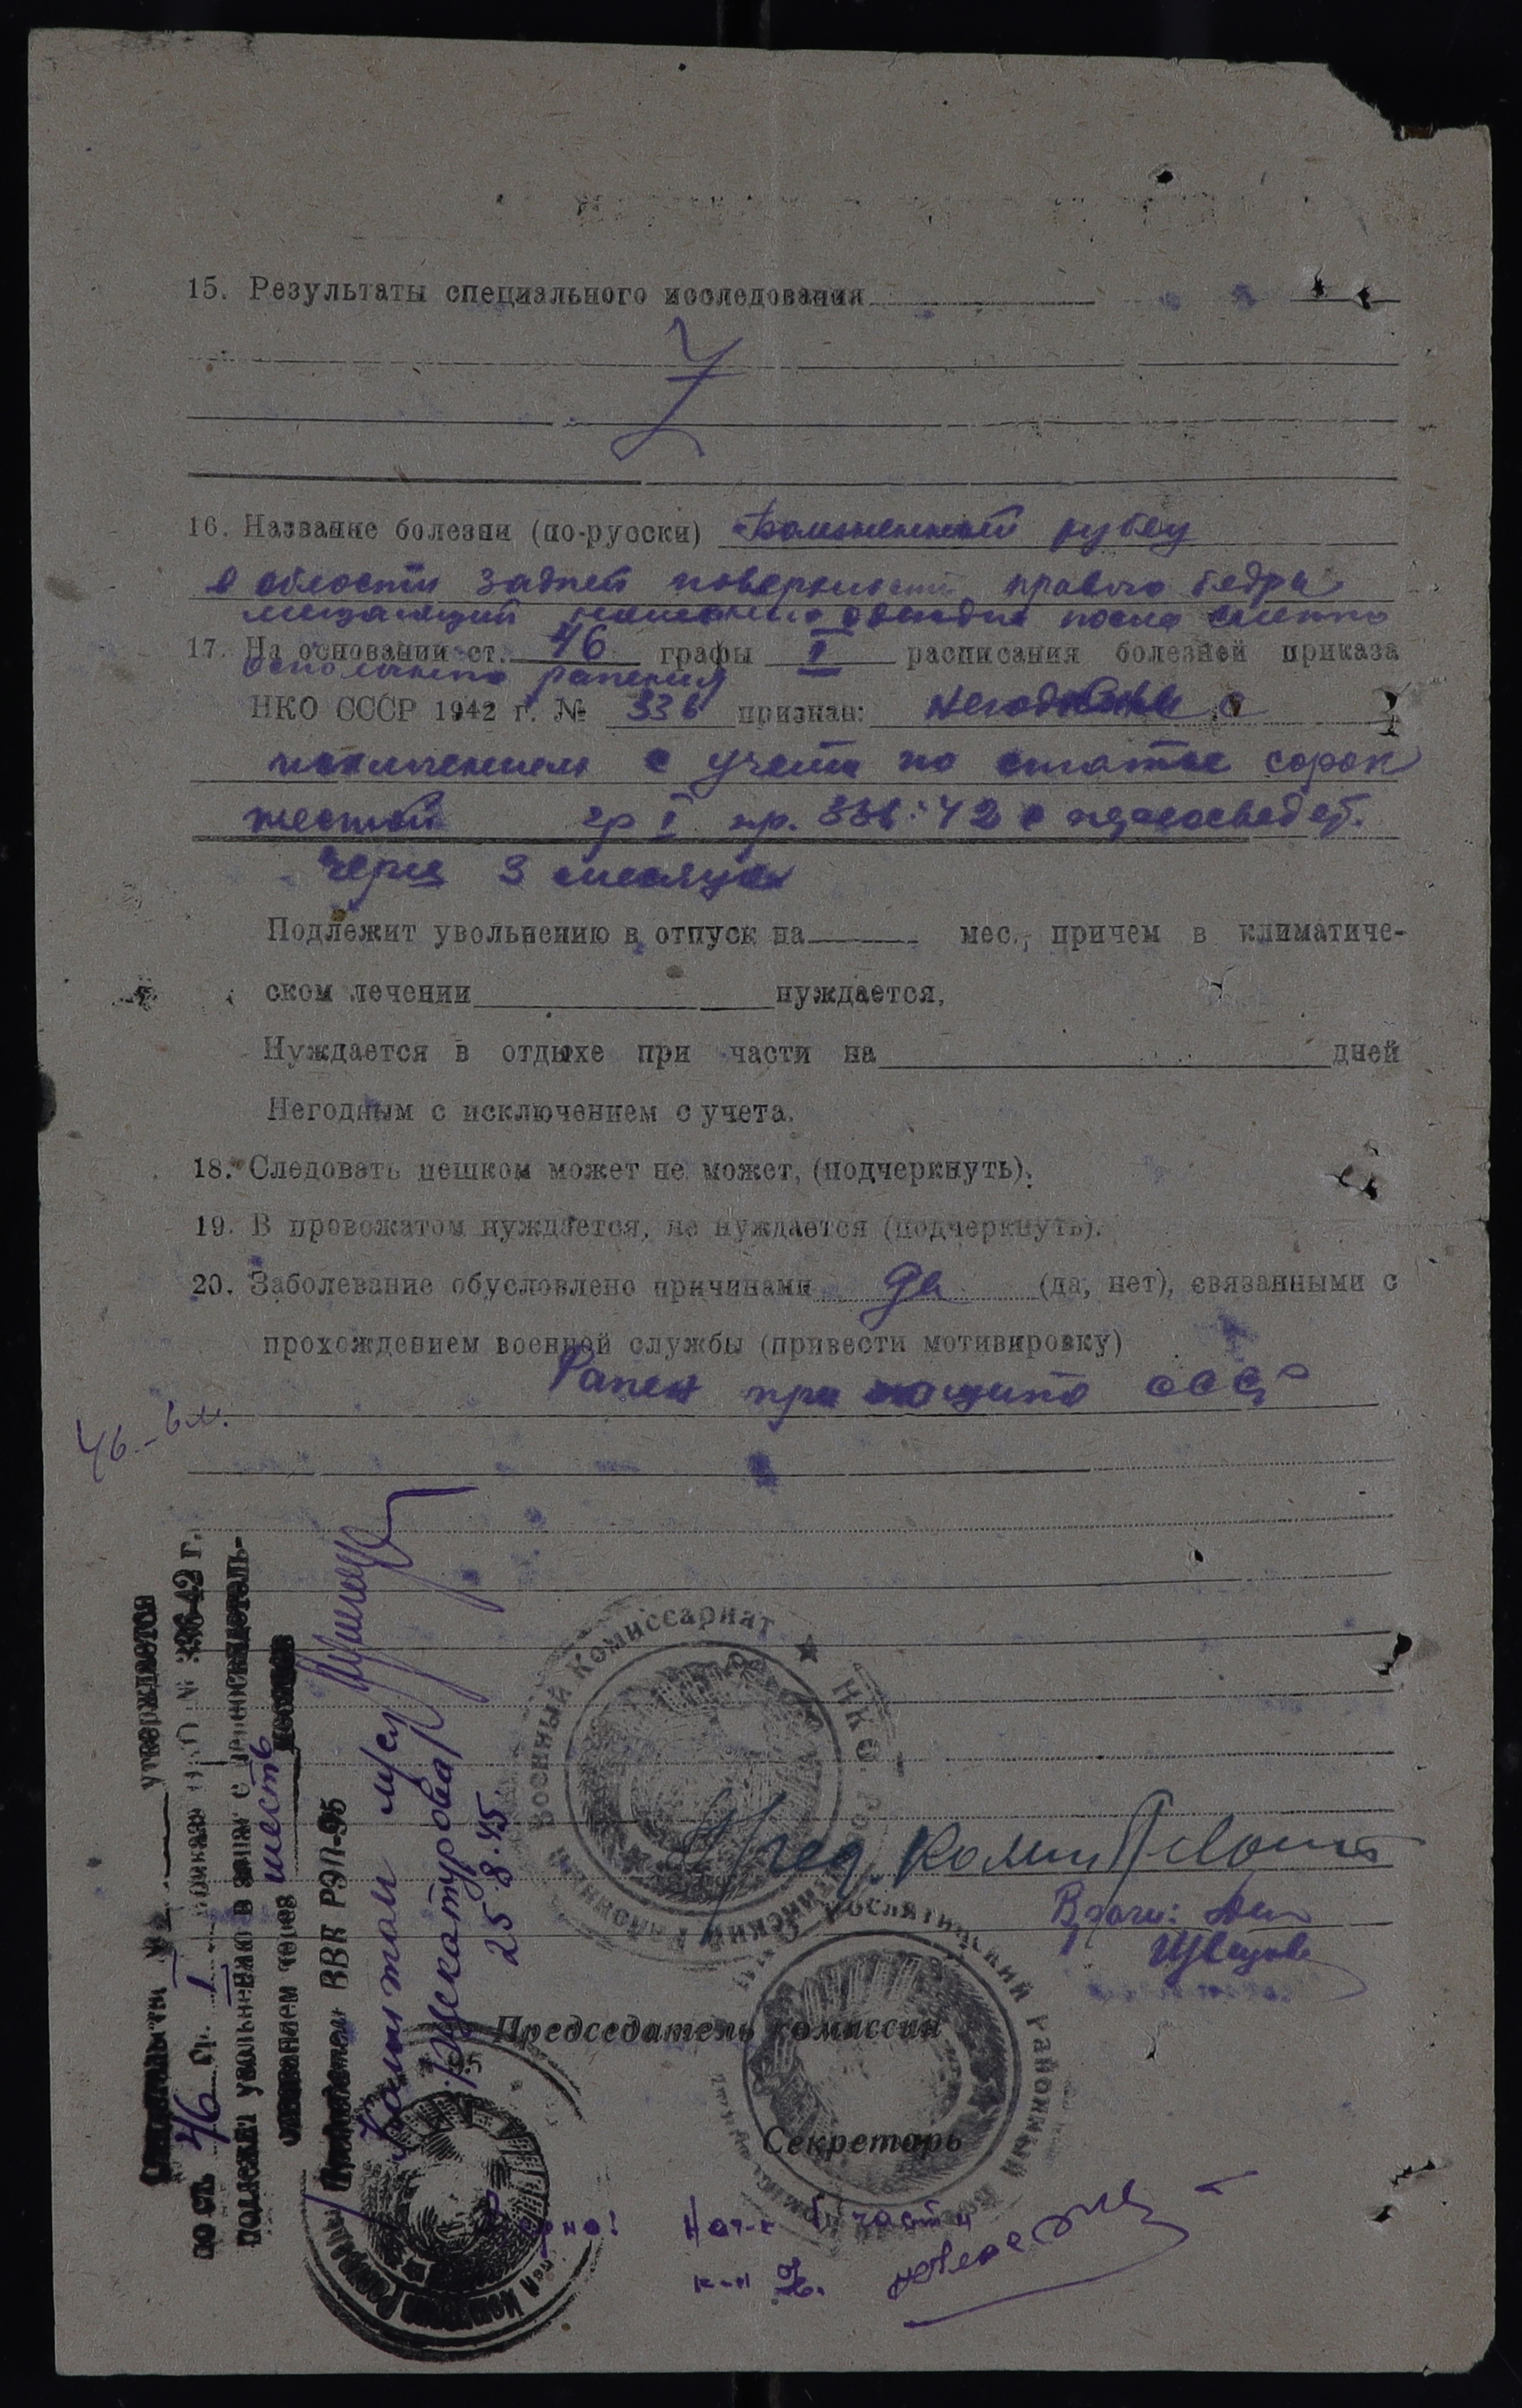 15. Результаты специального исследования
Z
16. Название болезни (по-русски) Болезненный рубец
в области задней поверхности правого бедра
мешающий ношению одежды после слепого
17. На основании ст. 46 графы I расписания болезней приказа
осколочного ранения
НКО СССР 1942 г. № 336 признан: негодным с
исключением с учета по статье сорок
шестой гр I пр. 336:42 с переосвидет.
Через 3 месяца
Подлежит увольнению в отпуск на мес., причем в климатиче-
ском лечении нуждается,
Нуждается в отдыхе при части на дней
Негодным с исключением с учета.
18. Следовать пешком может не может, (подчеркнуть).
19. В провожатом нуждается, не нуждается (подчеркнуть).
20. Заболевание обусловлено причинами да (да, нет), связанными с
прохождением военной службы (привести мотивировку)
Ранен при защите СССР
46-6м.
утверждается
по ст. 46 гр. I приказа № 336-42 г.
подлежит увольнению в запас с переосвидетель-
ствованием через шесть месяцев
Председатель ВВК РЭП-95
Капитан м/сл
/Москатурова/
25.8.45
Военный Комиссариат ★ НКО
Районный
Пред. Комис
Врачи:
Швецова
Районный
Председатель комиссии
Секретарь
Верно! Нач-к части
к-н